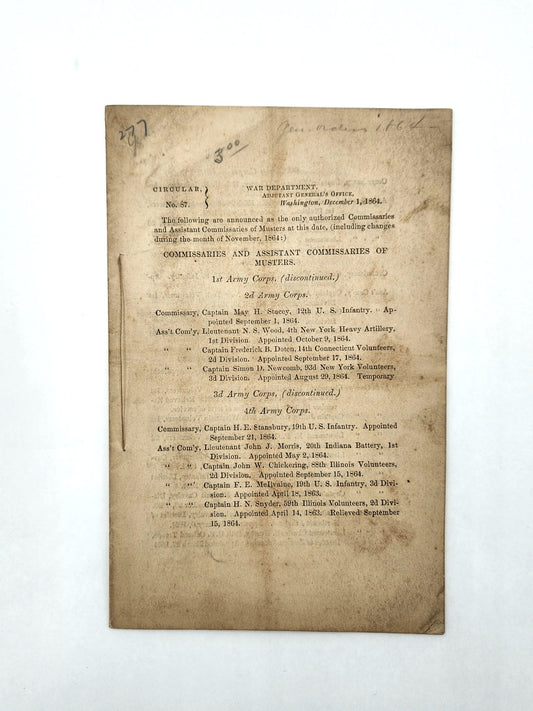 277
Gen. orders 1864
3.00
CIRCULAR,
No. 87.
WAR DEPARTMENT,
ADJUTANT GENERAL'S OFFICE,
Washington, December 1, 1864.
The following are announced as the only authorized Commissaries
and Assistant Commissaries of Musters at this date, (including changes
during the month of November, 1864:)
COMMISSARIES AND ASSISTANT COMMISSARIES OF
MUSTERS.
1st Army Corps, (discontinued.)
2d Army Corps.
Commissary, Captain May H. Stacey, 12th U. S. Infantry. Ap-
pointed September 1, 1864.
Ass't Com'y, Lieutenant N. S. Wood, 4th New York Heavy Artillery,
1st Division. Appointed October 9, 1864.
" " Captain Frederick B. Doten, 14th Connecticut Volunteers,
2d Division. Appointed September 17, 1864.
" " Captain Simon D. Newcomb, 93d New York Volunteers,
3d Division. Appointed August 29, 1864. Temporary.
3d Army Corps, (discontinued.)
4th Army Corps.
Commissary, Captain H. E. Stansbury, 19th U. S. Infantry. Appointed
September 21, 1864.
Ass't Com'y, Lieutenant John J. Morris, 20th Indiana Battery, 1st
Division. Appointed May 2, 1864.
" " Captain John W. Chickering, 88th Illinois Volunteers,
2d Division. Appointed September 15, 1864.
" " Captain F. E. McIlvalue, 19th U. S. Infantry, 3d Divi-
sion. Appointed April 18, 1863.
" " Captain H. N. Snyder, 59th Illinois Volunteers, 2d Divi-
sion. Appointed April 14, 1863. Relieved September
15, 1864.